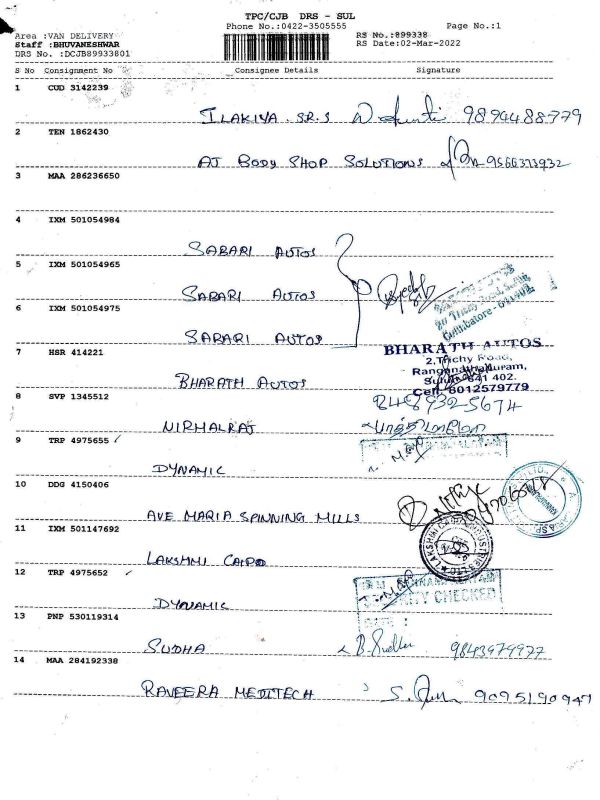 TPC/CJB DRS - SUL
Phone No.:0422-3505555 Page No.:1
Area :VAN DELIVERY RS No.:899338
Staff :BHUVANESHWAR RS Date:02-Mar-2022
DRS No. :DCJB89933801
S No Consignment No Consignee Details Signature
1 CUD 3142239
ILAKIYA S.R.S 9894488779
2 TEN 1862430
AJ BODY SHOP SOLUTIONS 9566373932
3 MAA 286236650
4 IXM 501054984
SABARI AUTOS
5 IXM 501054965
SABARI AUTOS
6 IXM 501054975
SABARI AUTOS
Coimbatore - 641402
7 HSR 414221
BHARATH AUTOS
2, Trichy Road,
Ranganathapuram,
Sulur - 641 402.
Cell: 8012579779
BHARATH AUTOS
8 SVP 1345512
8489325674
NIRMALRAJ
9 TRP 4975655
DYNAMIC
10 DDG 4150406
AVE MARIA SPINNING MILLS
11 IXM 501147692
LAKSHMI CARD
12 TRP 4975652
SECURITY CHECKED
DATE :
DYNAMIC
13 PNP 530119314
SUDHA B. Sudha 9843979977
14 MAA 284192338
RAVEERA MEDITECH 9095190947